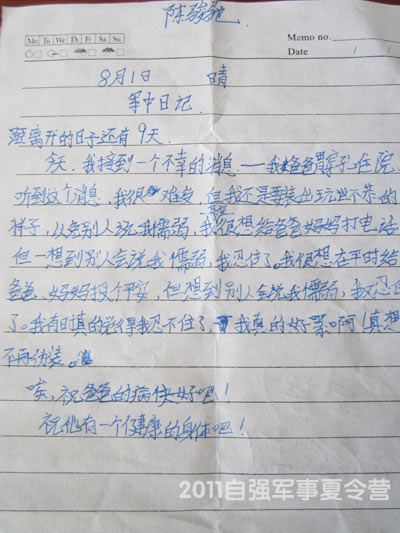 陈骏驰
Memo no.
Mo Tu We Th Fr Sa Su
Date / /
8月1日 晴
军中日记
距离开的日子还有9天.
今天,我接到一个不幸的消息——我爸爸胃穿孔住院,
听到这个消息,我很难受,但我还是要装出玩世不恭的
样子,以免别人说我懦弱,我很想给爸爸妈妈打电话,
但一想到别人会说我懦弱,我忍住了。我很想在平时给
爸爸、妈妈报个平安,但想到别人会说我懦弱,我又忍住
了。我有时真的觉得我忍不住了,我真的好累啊!真想
不再伪装。
唉,祝爸爸的病快好吧!
祝他有一个健康的身体吧!
2011自强军事夏令营